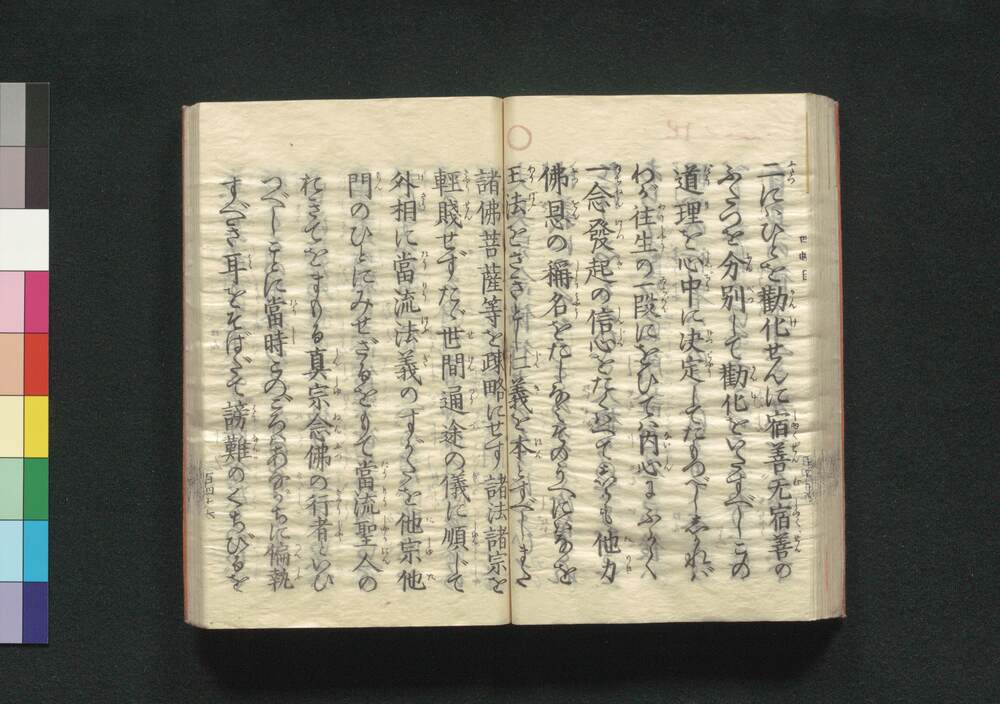 二にハひとを勸化せんに宿善无宿善の
ふたつを分別して勸化をいたすべしこの
道理を心中に決定してたもつべし志かれバ
わが往生の一段にをひてハ内心にふかく
一念發起の信心をたくハへて志かも他力
佛恩の稱名をたしなみそのうへにハなを
王法をさきとし仁義を本とすべしまた
諸佛菩薩等を疎略にせず諸法諸宗を
輕賤せずたゞ世間通途の儀に順じて
外相に當流法義のすがたを他宗他
門のひとにみせざるをもて當流聖人の
をきてをまもる真宗念佛の行者といひ
つべしことに當時このごろハあながちに偏執
すべき耳をそばだて謗難のくちびるを